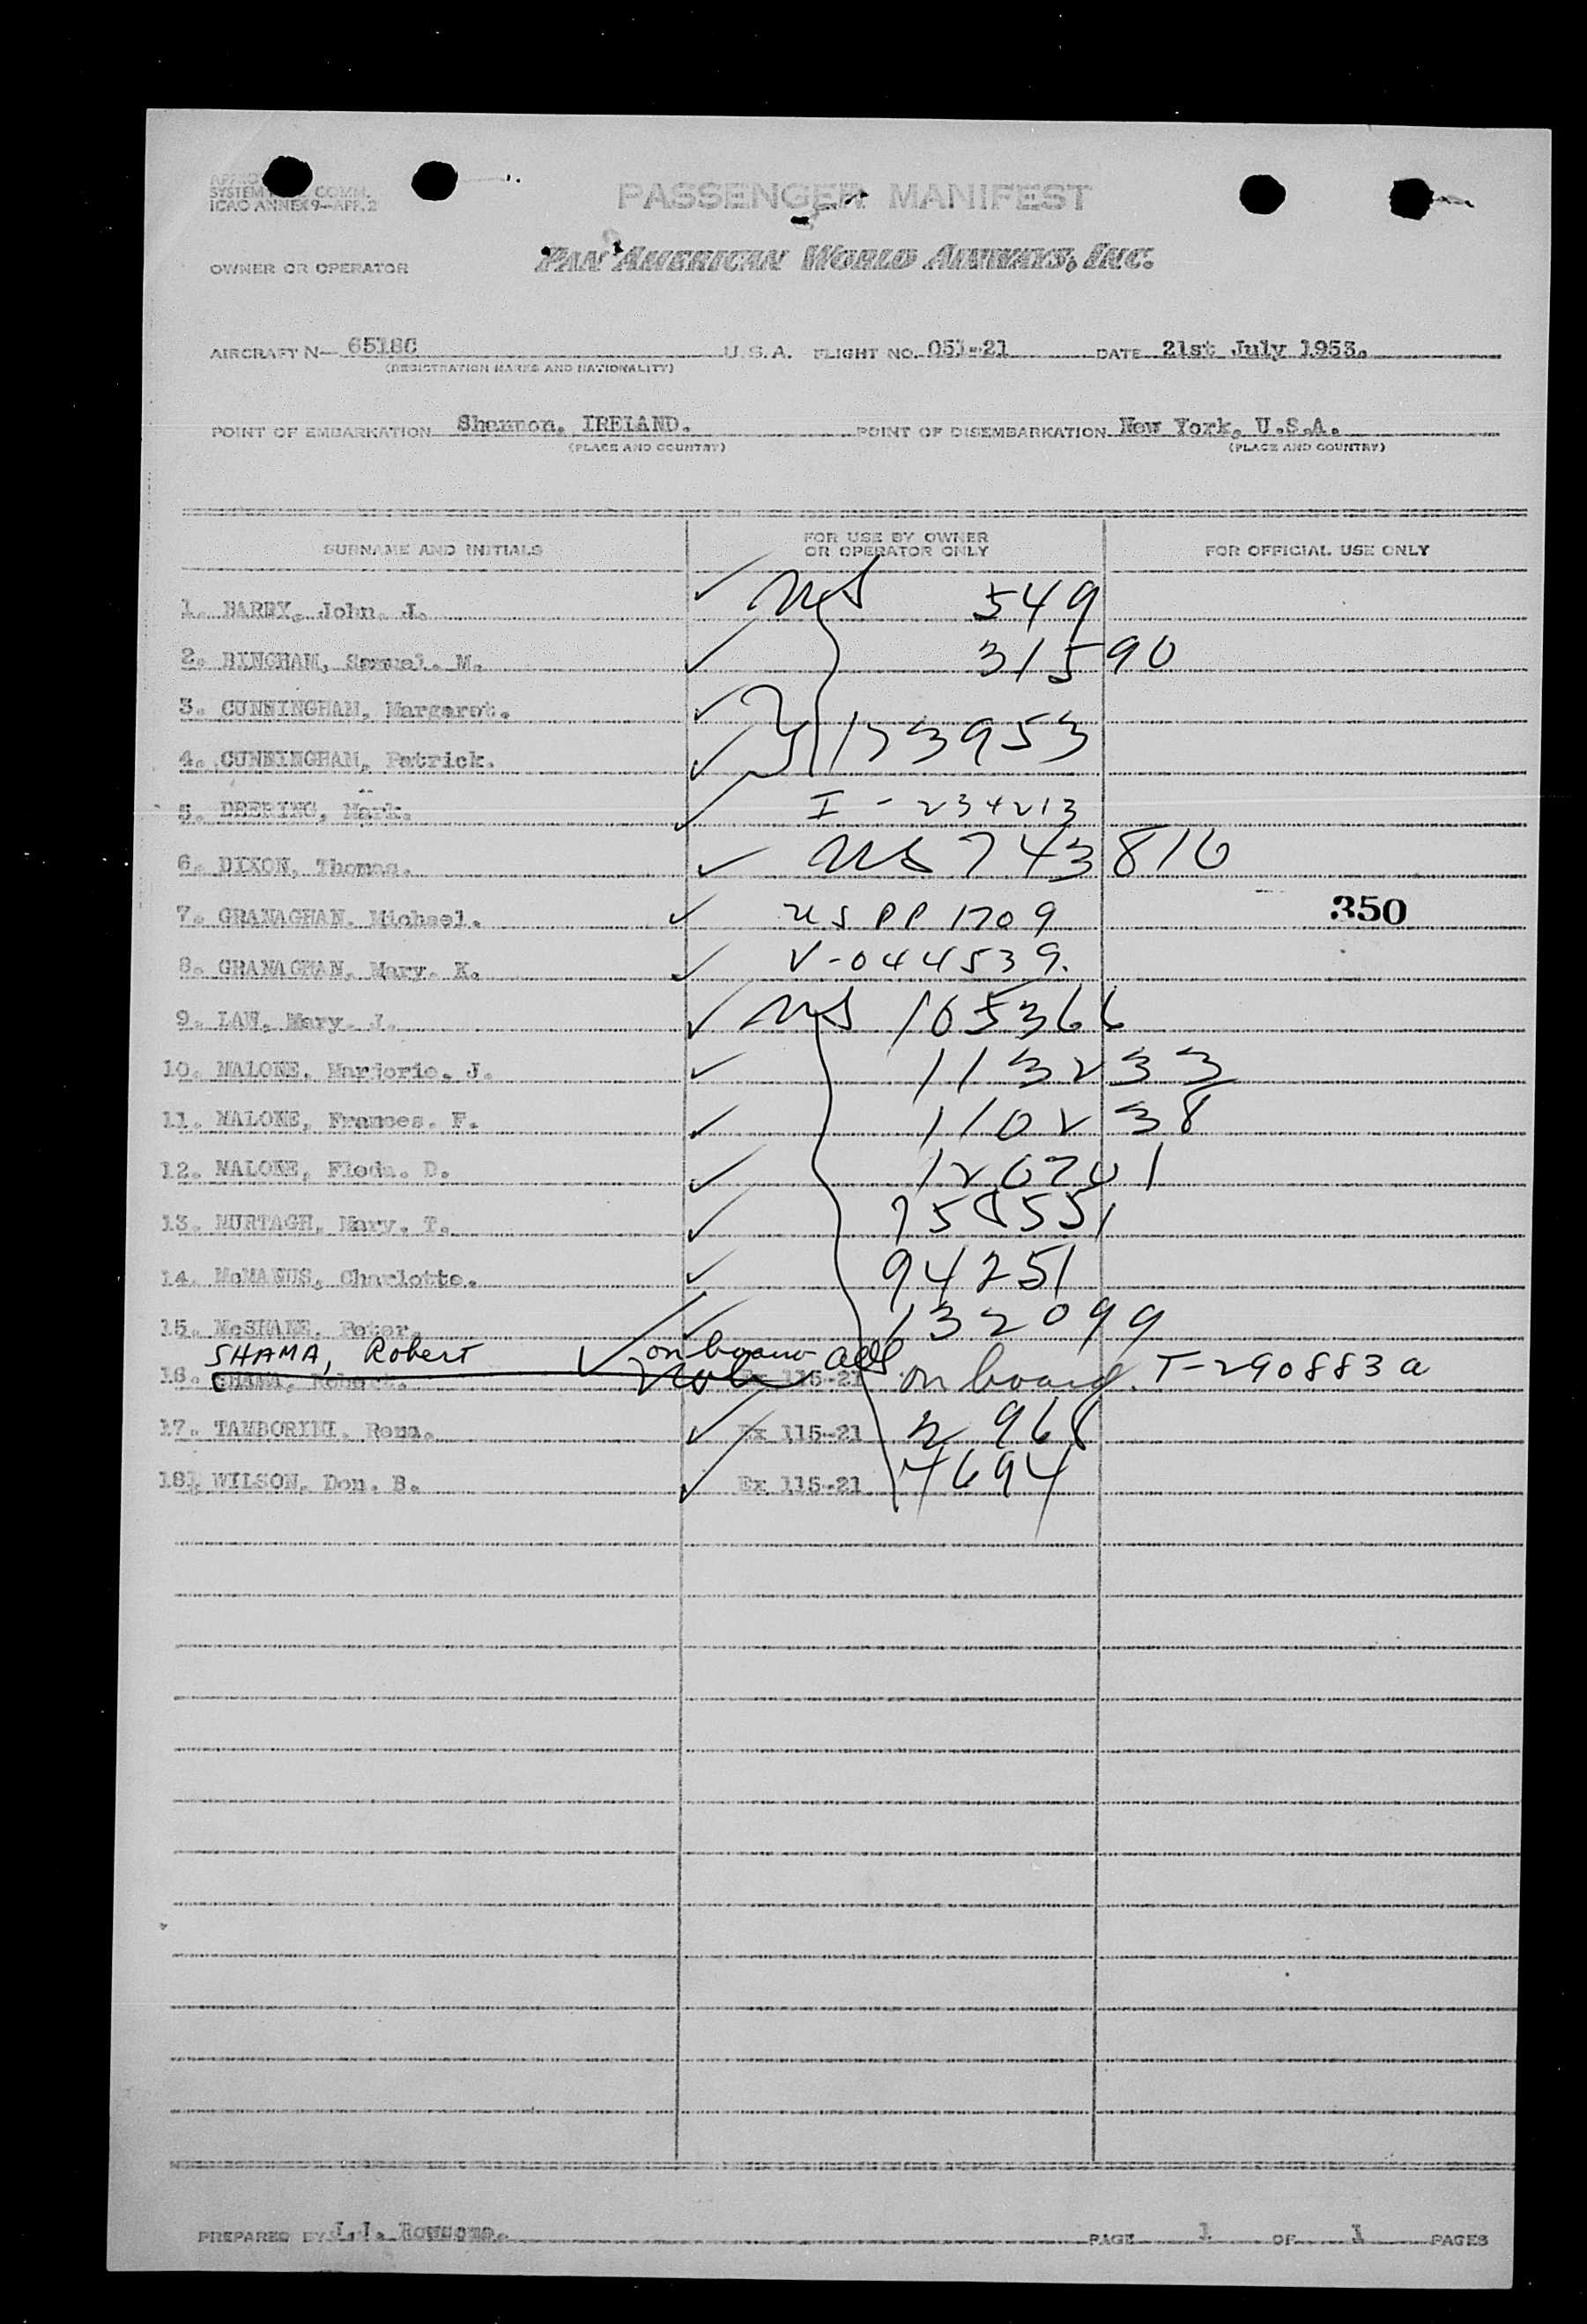 SYSTEM COMM.
ICAO ANNEX 9—APP. 2
PASSENGER MANIFEST
OWNER OR OPERATOR PAN AMERICAN WORLD AIRWAYS, INC.
AIRCRAFT N— 6518C U.S.A. FLIGHT NO. 051-21 DATE 21st July 1953.
(REGISTRATION MARKS AND NATIONALITY)
POINT OF EMBARKATION Shannon. IRELAND. POINT OF DISEMBARKATION New York, U.S.A.
(PLACE AND COUNTRY) (PLACE AND COUNTRY)
SURNAME AND INITIALS FOR USE BY OWNER OR OPERATOR ONLY FOR OFFICIAL USE ONLY
1. BARRY, John. J. ✓ US 549
2. BINGHAM, Samuel. M. ✓ 31590
3. CUNNINGHAM, Margaret. ✓
4. CUNNINGHAM, Patrick. ✓ 173953
5. DEERING, Mark. ✓ I - 234213
6. DIXON, Thomas. ✓ US 743816
7. GRANAGHAN. Michael. ✓ US PP 1709 350
8. GRANAGHAN. Mary. K. ✓ V-044539.
9. LAW, Mary. J. ✓ US 105366
10. MALONE. Marjorie. J. ✓ 113233
11. MALONE, Frances. F. ✓ 110238
12. MALONE, Floda. D. ✓ 126701
13. MURTAGH, Mary. T. ✓ 758551
14. McMANUS, Charlotte. ✓ 94251
15. McSHANE, Peter. ✓ 132099
SHAMA, Robert ✓ on board
16. SHAMA, Robert. Ex 115-21 on board. T-290883a
17. TAMBORINI. Rena. ✓ Ex 115-21 968
18. WILSON, Don. B. ✓ Ex 115-21 4694
PREPARED BY PAGE 1 OF 1 PAGES